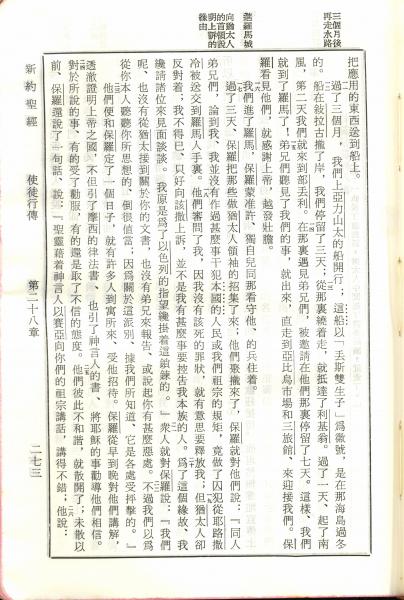 三個月後
再走水路
進羅馬城
向猶太人
的首領說
明上訴的
緣由
把應用的東西送到船上。
過了三個月，我們上亞力山太的船開行；這船以『丟斯雙生子』為徽號，是在那海島過冬
的。船在敘拉古攏了岸，我們停留了三天；從那裏繞着走，就抵達了利基翁。過了一天、起了南
風，第二天我們就來到部丟利。在那裏遇見弟兄們，被邀請在他們那裏停留了七天。這樣，我們
就到了羅馬了！弟兄們聽見了我們的事，就出來，直走到亞比烏市場和三旅館、來迎接我們。保
羅看見他們，就感謝上帝、越發壯膽。
我們進了羅馬，保羅蒙准許、獨自兒同那看守他、的兵住着。
過了三天、保羅把那些做猶太人領袖的招集了來；他們聚攏來了，保羅就對他們說：『同人
弟兄們，論到我、我並沒有作過甚麼事干犯本國的人民或我們祖宗的規矩，竟做了囚犯從耶路撒
冷被送交到羅馬人手裏。他們審問了我，因我沒有該死的罪狀，就有意思要釋放我；但猶太人卻
反對着；我不得已、只好向該撒上訴，並不是我有甚麼事要控告我本族的人。為了這個緣故、我
纔請諸位來見面談談。我原是為了以色列的指望纔掛着這鎖鍊的。』眾人就對保羅說：『我們
呢、也沒有從猶太接到關於你的文書，也沒有弟兄來報告、或說起你有甚麼惡處。不過我們以為
從你本人聽聽你所思想的、倒很值當；因為關於這派別、據我們所知道、它是各處受抨擊的。』
他們便和保羅定了一個日子，就有許多人到寓所來、受他招待。保羅從早到晚對他們講解，
透澈證明上帝之國，不但引了摩西的律法書、也引了神言人的書、將耶穌的事勸導他們相信。
對於所說的事、有的受了勸服，有的還是取了不信的態度。他們彼此不和諧，就散開了；未散以
前、保羅還說了一句話，說：『聖靈藉着神言人以賽亞向你們的祖宗講話，講得不錯；他說：
新約聖經　使徒行傳　第二十八章　二七三